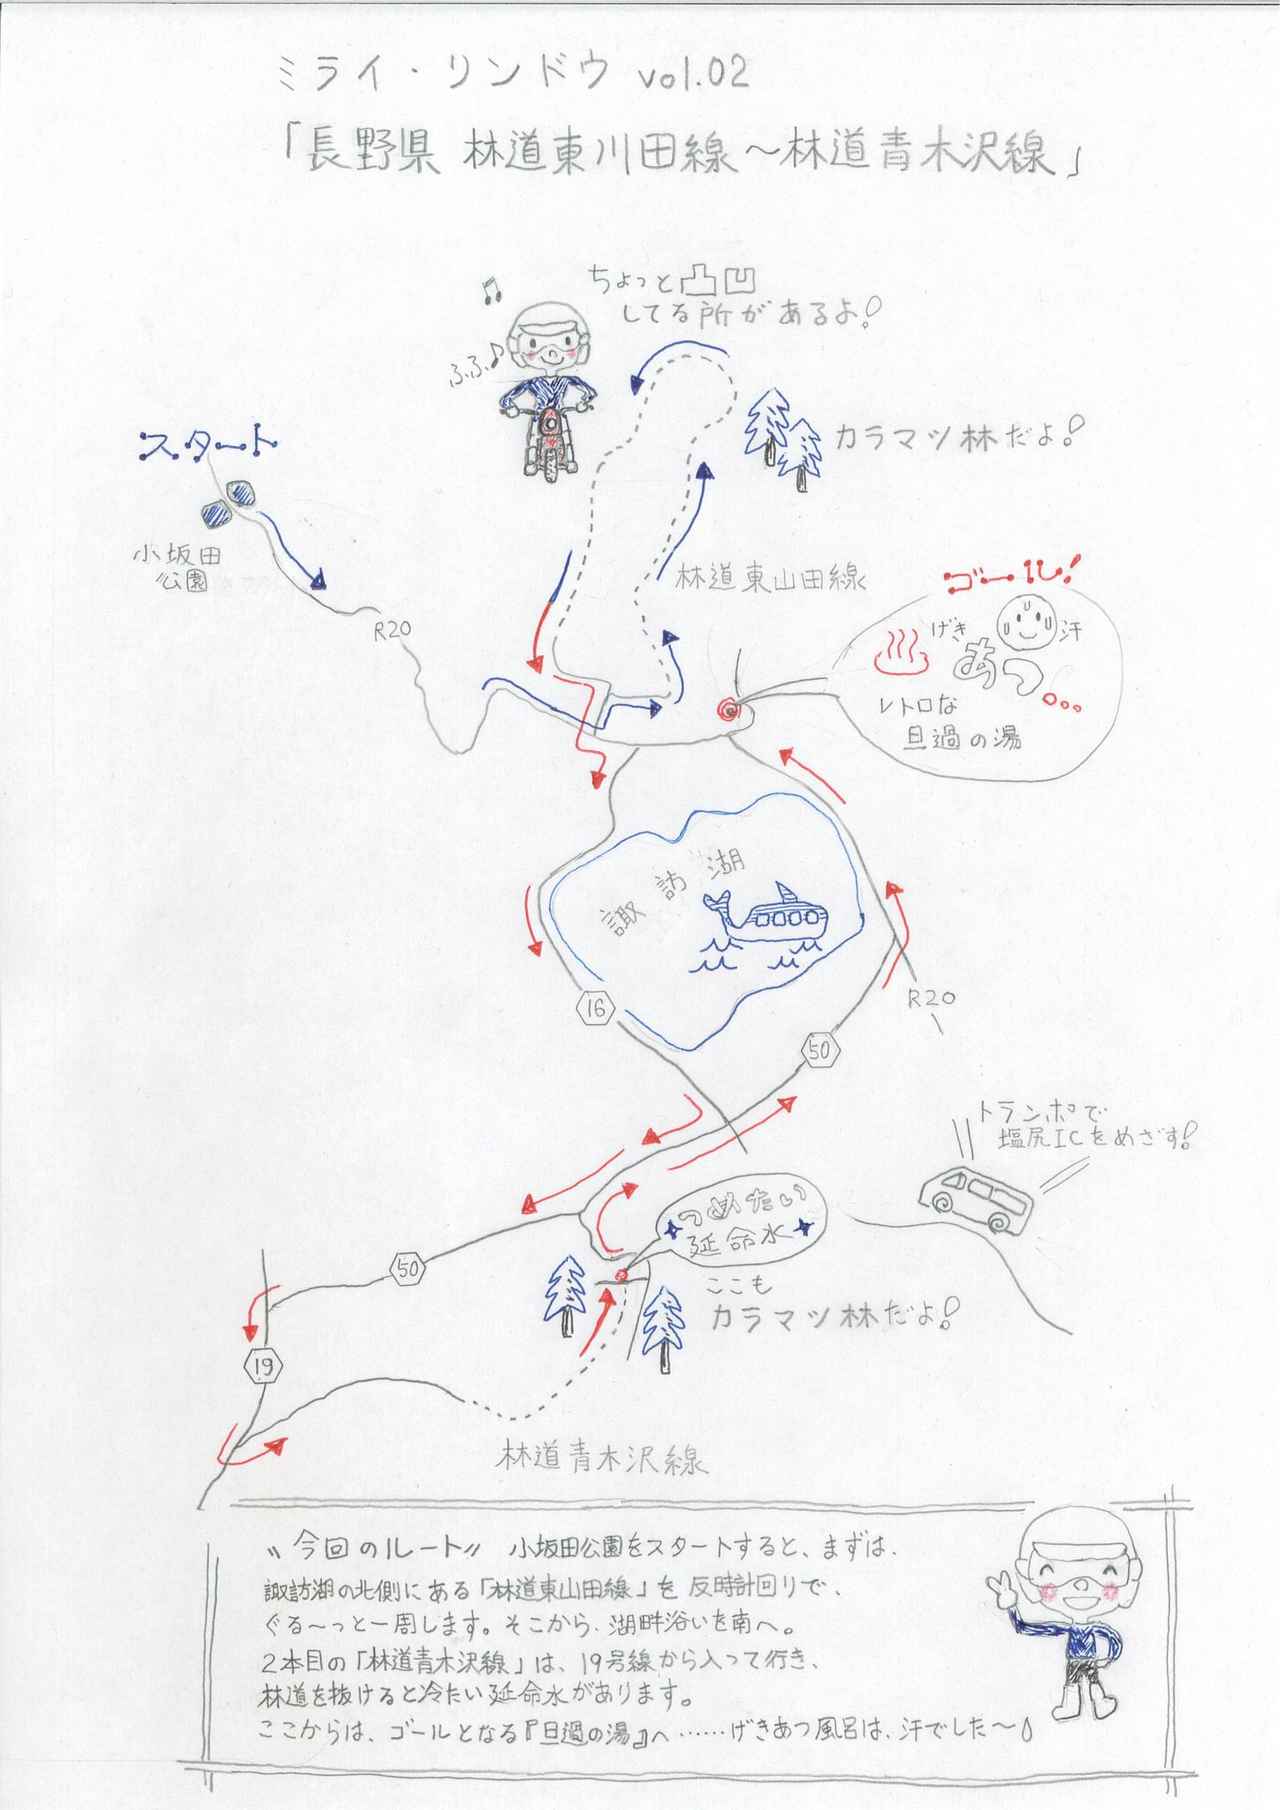 ミライ・リンドウ vol.02
「長野県 林道東川田線～林道青木沢線」
ちょっと凸凹
してる所があるよ!
ふふ♪
スタート
カラマツ林だよ!
小坂田
公園
R20
林道東山田線
ゴール!
げき
あつ...
汗
レトロな
旦過の湯
諏訪湖
16
R20
50
トランポで
塩尻ICをめざす!
つめたい
延命水
50
ここも
カラマツ林だよ!
19
林道青木沢線
〝今回のルート〟 小坂田公園をスタートすると、まずは、
諏訪湖の北側にある「林道東山田線」を反時計回りで、
ぐる～っと一周します。そこから、湖畔沿いを南へ。
2本目の「林道青木沢線」は、19号線から入って行き、
林道を抜けると冷たい延命水があります。
ここからは、ゴールとなる『旦過の湯』へ……げきあつ風呂は、汗でした～